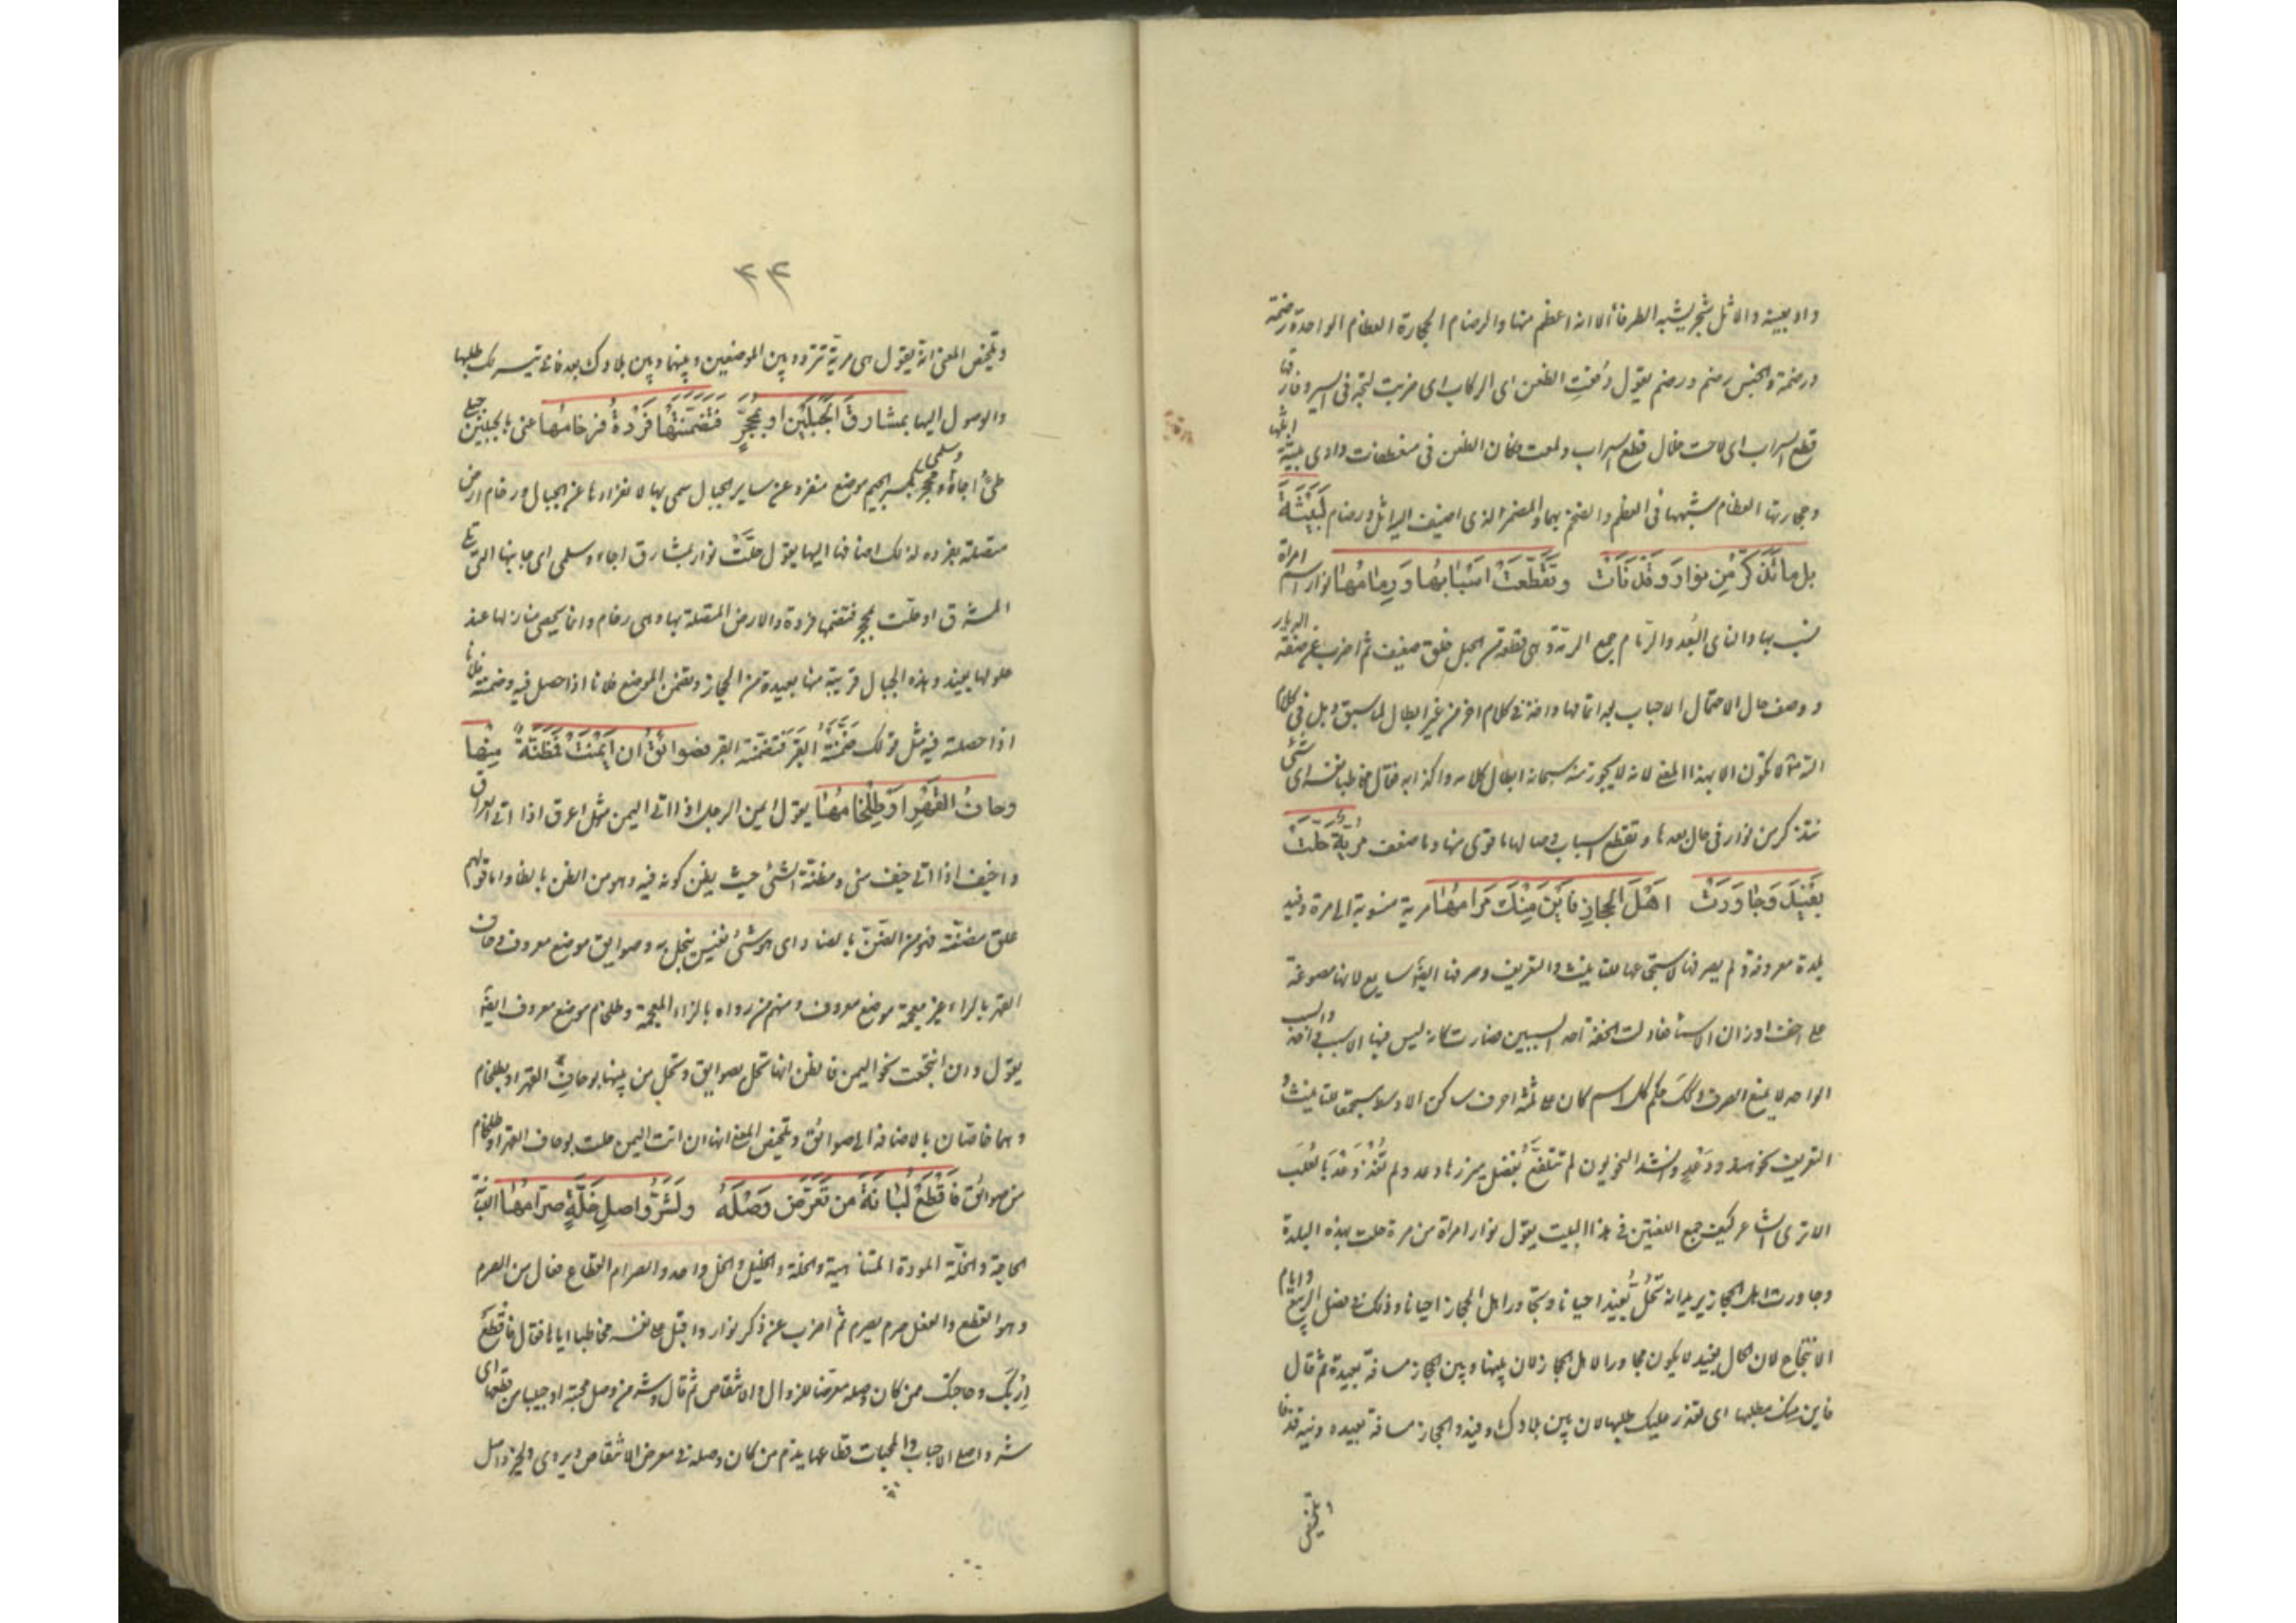 واد بعينه والاثل شجر يشبه الطرفاء الا انه اعظم منها والرضام الحجارة العظام الواحدة رضمة
ورضمة والجنس رضم ورضم يقول دفعت الظعن اى الركاب اى ضربت لتجد فى السير وفارقها
قطع السراب اى لاحت خلال قطع السراب ولمعت فكان الظعن فى منعطفات وادى بيشة اثلها
وحجارتها العظام شبهها فى العظم والضخم بهما والمضمر الذى اضيف اليه اثل ورضام لبيشة
بل ما تذكر من نوار وقد نأت وتقطعت اسبابها ورمامها نوار اسم امراة
يشبب بها والناى البعد والرمام جمع الرمة وهى قطعة من الحبل خلق ضعيف ثم اضرب عن صفة الديار
ووصف حال الاحتمال الاحباب بعد اتمامها واخذ فى كلام اخر من غير ابطال لما سبق وبل فى كلام
الله تعالى لا تكون الا بهذا المعنى لانه لا يجوز منه سبحانه ابطال كلامه واكذابه فقال مخاطبا نفسه اى شئ
تتذكر من نوار فى حال بعدها وتقطع اسباب وصالها ما قوى منها وما ضعف مرية حلت
بفيد وجاورت اهل الحجاز فاين منك مرامها مرية منسوبة الى مرة وفيد
بلدة معروفة ولم يصرفها لاستجماعها التانيث والتعريف وصرفها ايضا سايغ لانها مصوغة
على اخف اوزان الاسماء فعادلت الخفة احد السببين فصارت كانه ليس فيها الا سبب واحد والسبب
الواحد لا يمنع الصرف وكذلك حكم كل اسم كان على ثلثة احرف ساكن الاوسط مستجمعا للتانيث و
التعريف نحو هند ودعد وانشد النحويون لم تتلفع بفضل ميزرها دعد ولم تغذ دعد بالعلب
الا ترى الشاعر كيف جمع اللغتين فى هذا البيت يقول نوار امراة من مرة حلت بهذه البلدة
وجاورت اهل الحجاز يريد انها تحل بفيد احيانا وتجاور اهل الحجاز احيانا وذلك فى فصل الربيع وايام
الانتجاع لان الحال بفيد لا يكون مجاورا لاهل الحجاز لان بينها وبين الحجاز مسافة بعيدة ثم قال
فاين منك مطلبها اى تعذر عليك طلبها لان بين بلادك وفيد والحجاز مسافة بعيدة
وتلخيص
٣٣
وتلخيص المعنى انه يقول هى مرية تتردد بين الموضعين وبينهما وبين بلادك بعد فانى يتيسر لك طلبها
والوصول اليها بمشارق الجبلين او بمحجر فتضمنتها فردة فرخامها عنى بالجبلين جبلى
طئ اجاء وسلمى ومحجر بكسر الجيم موضع منفرد عن ساير الجبال سمى بها لانفرادها عن الجبال ورخام ارض
متصلة بفردة لذلك اضافها اليها يقول حلت نوار بمشارق اجاء وسلمى اى جانبها التى تلى
المشرق او حلت بمحجر فتضمنها فردة والارض المتصلة بها وهى رخام وانما يحصى منازلها عند
حلولها بفيد وهذه الجبال قريبة منها بعيدة من الحجاز وتضمن الموضع فلانا اذا حصل فيه وضمنته فلانا
اذا حصلته فيه مثل قولك ضمنته القبر فتضمنه القبر فصوائق ان ايمنت فمظنة منها
وحاف القهر او طلخامها يقول ايمن الرجل اذا اتى اليمن مثل اعرق اذا اتى العراق
واخيف اذا اتى خيف منى ومظنة الشئ حيث يظن كونه فيه وهو من الظن بالظاء واما قولهم
علق مضنة فهو من الضن بالضاد اى هو شئ نفيس يبخل به وصوايق موضع معروف وحاف
القهر بالراء غير معجمة موضع معروف ومنهم من رواه بالزاء المعجمة وطلخام موضع معروف ايضا
يقول وان انتجعت نحو اليمن فالظن انها تحل بصوايق وتحل من بينها بوحاف القهر او بطلخام
وهما خاصتان بالاضافة الى صوائق وتلخيص المعنى انها ان اتت اليمن حلت بوحاف القهر او طلخام
من صوائق فاقطع لبانة من تعرض وصله ولشر واصل خلة صرامها اللبانة
الحاجة والخلة المودة المتناهية والخلة والخليل والخل واحد والصرام القطاع فعال من الصرم
وهو القطع والفعل صرم يصرم ثم اضرب عن ذكر نوار واقبل على نفسه مخاطبا اياها فقال فاقطع
اربك وحاجتك ممن كان وصله معرضا للزوال والانتقاض ثم قال وشر من وصل محبة او حبيبا من قطعها اى
شر واصلى الاحباب والمحبات قطاعها يذم من كان وصله فى معرض الانتقاض ويروى ولخير واصل